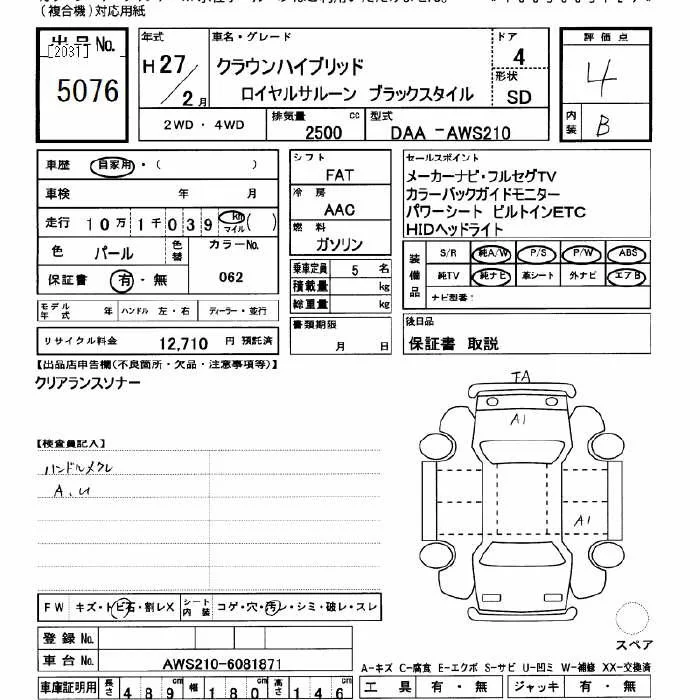 (複合機)対応用紙
出品No.
[2031]
5076
年式
H27/2月
車名・グレード
クラウンハイブリッド
ロイヤルサルーン ブラックスタイル
ドア
4
形状
SD
評価点
4
内装
B
2WD・4WD
排気量
2500 cc
型式
DAA -AWS210
車歴 自家用・( )
車検 年 月
走行 10万1千039 km マイル ( )
色 パール 色替
カラーNo.
062
保証書 有・無
モデル年式 年 ハンドル 左・右 ディーラー・並行
リサイクル料金 12,710 円 預託済
シフト
FAT
冷房
AAC
燃料
ガソリン
乗車定員 5 名
積載量 kg
総重量 kg
書類期限
月 日
セールスポイント
メーカーナビ・フルセグTV
カラーバックガイドモニター
パワーシート ビルトインETC
HIDヘッドライト
装備品
S/R 純A/W P/S P/W ABS
純TV 純ナビ 革シート 外ナビ エアB
ナビ型番:
後日品
保証書 取説
【出品店申告欄(不良箇所・欠品・注意事項等)】
クリアランスソナー
【検査員記入】
ハンドルメクレ
A、U
TA
A1
A1
スペア
FW キズ・トビ石・割レX
シート内装 コゲ・穴・汚レ・シミ・破レ・スレ
登録No.
車台No. AWS210-6081871
車庫証明用 長さ 489cm 幅 180cm 高さ 146cm
A-キズ C-腐食 E-エクボ S-サビ U-凹ミ W-補修 XX-交換済
工具 有・無 ジャッキ 有・無